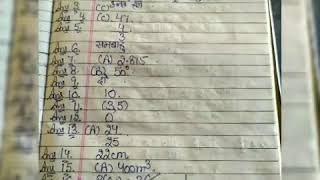 Ans 3 (C)
Ans 4. (C) 47
Ans 5. 4
3
Ans 6.
Ans 7. (A) 2.815
Ans 8. (B) 50°
Ans 9. दो
Ans 10. 10
Ans 11. (3,5)
Ans 12. 0
Ans 13. (A) 24
25
Ans 14. 22cm
Ans 15. (A) 400m³